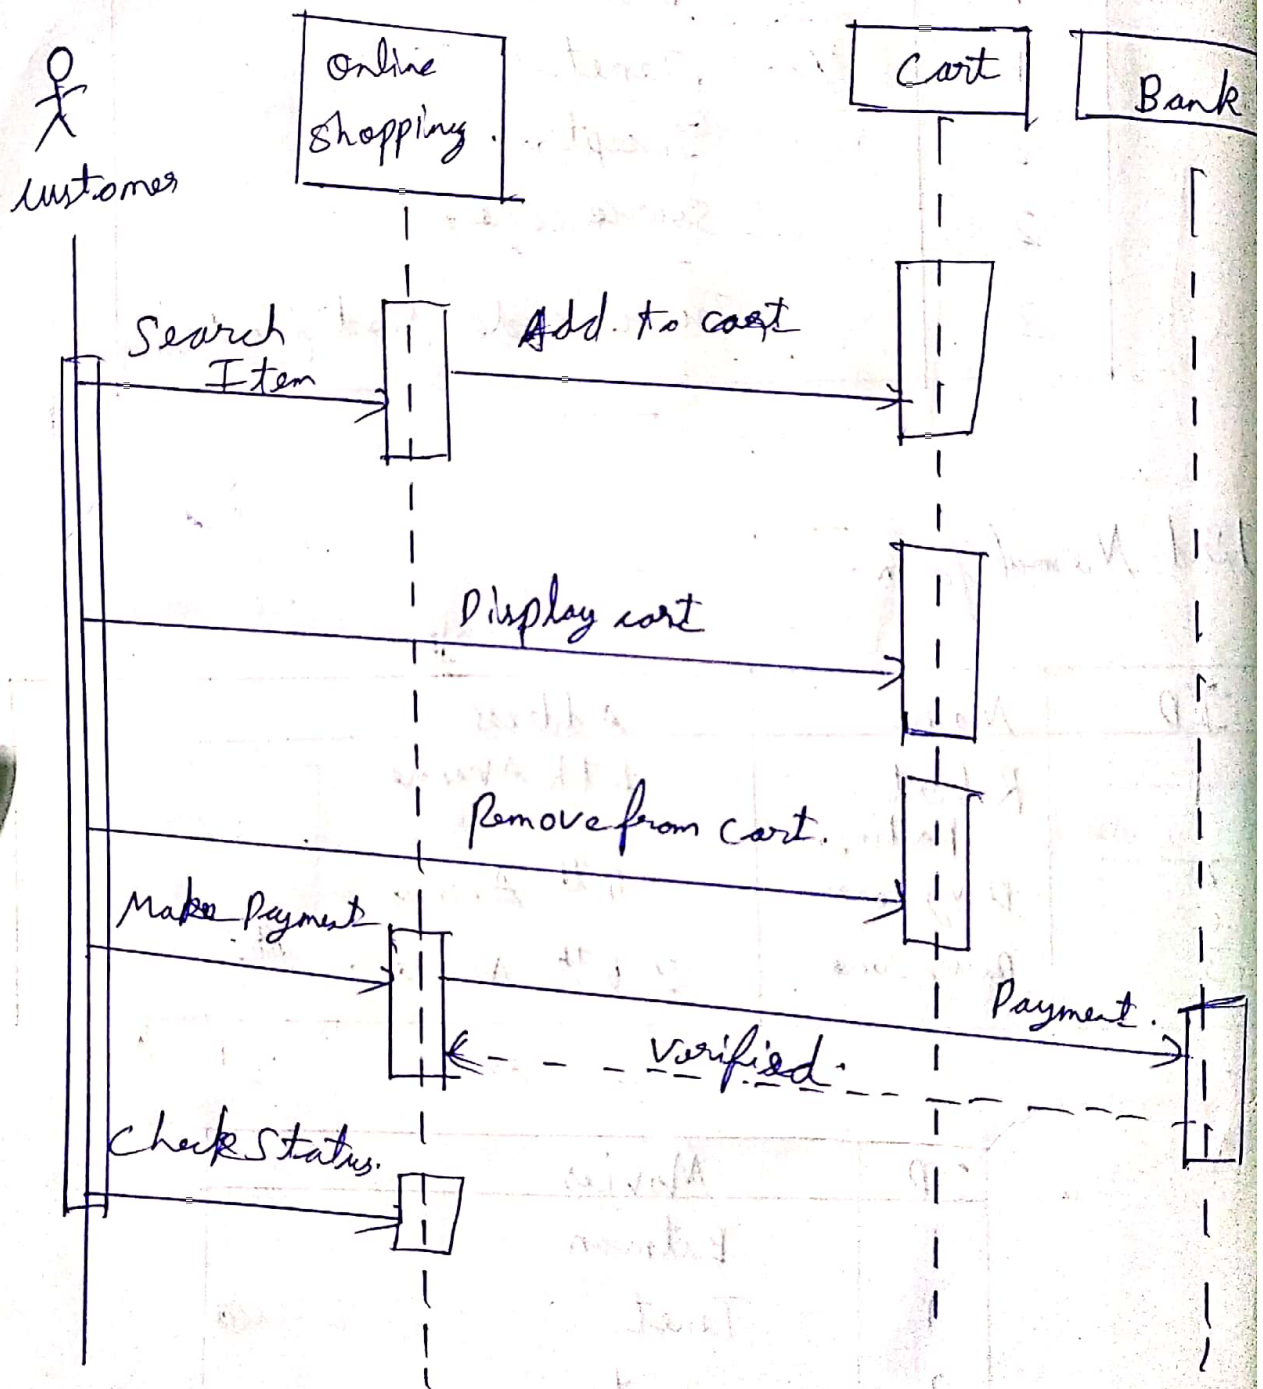 Online
Shopping.
Cart
Bank
Customer
Search
Item
Add to cart
Display cart
Remove from cart.
Make Payment
Payment.
Verified.
Check Status.